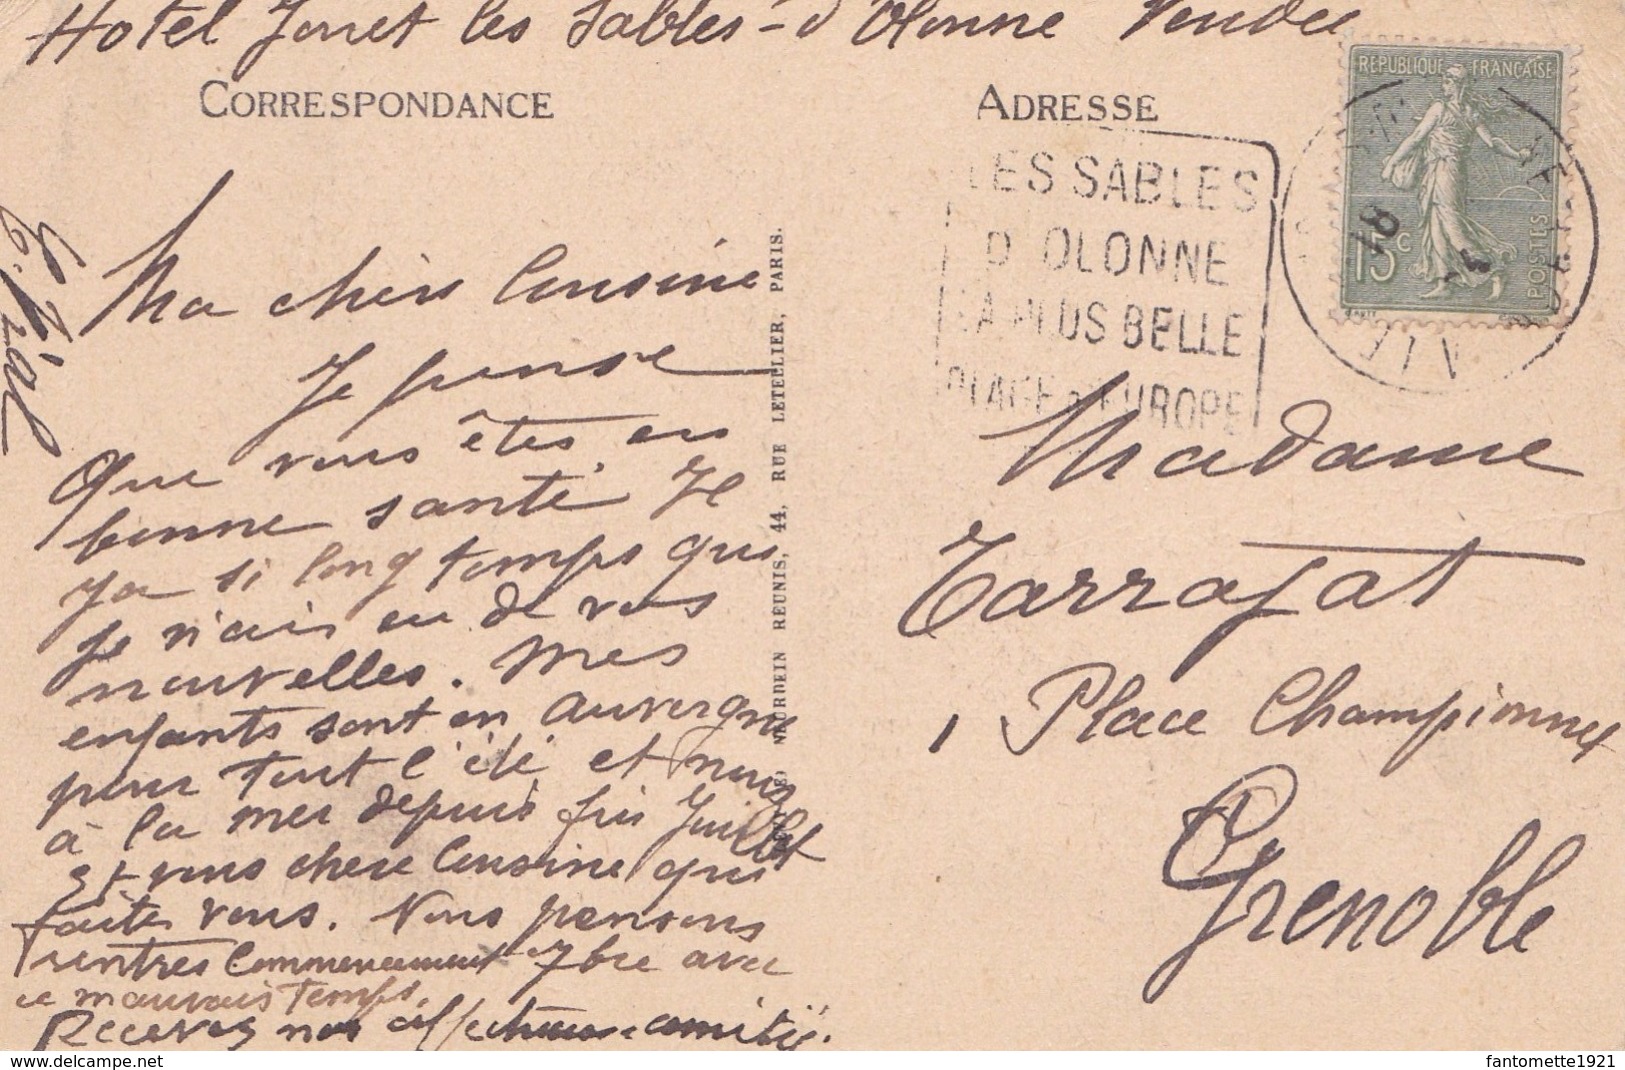 Hotel Jouet les Sables-d'Olonne Vendée
CORRESPONDANCE
ADRESSE
RÉPUBLIQUE FRANÇAISE
15c
POSTES
LES SABLES
D OLONNE
LA PLUS BELLE
PLAGE D'EUROPE
Ma chère Cousine
Je pense
que vous êtes en
bonne santé Je
ya si longtemps que
je n'ais eu de vos
nouvelles. Mes
enfants sont en Auvergne
pour tout l'été et nous
à la mer depuis fin Juillet
et vous chere Cousine que
faite vous. Nous pensons
rentrer Commencement 7bre avec
ce mauvais temps.
Recevez nos affectueuse amitié.
NEURDEIN REUNIS, 44, RUE LETELLIER, PARIS.
Madame
Tarrafat
1 Place Championnet
Grenoble
delcampe.net
fantomette1921